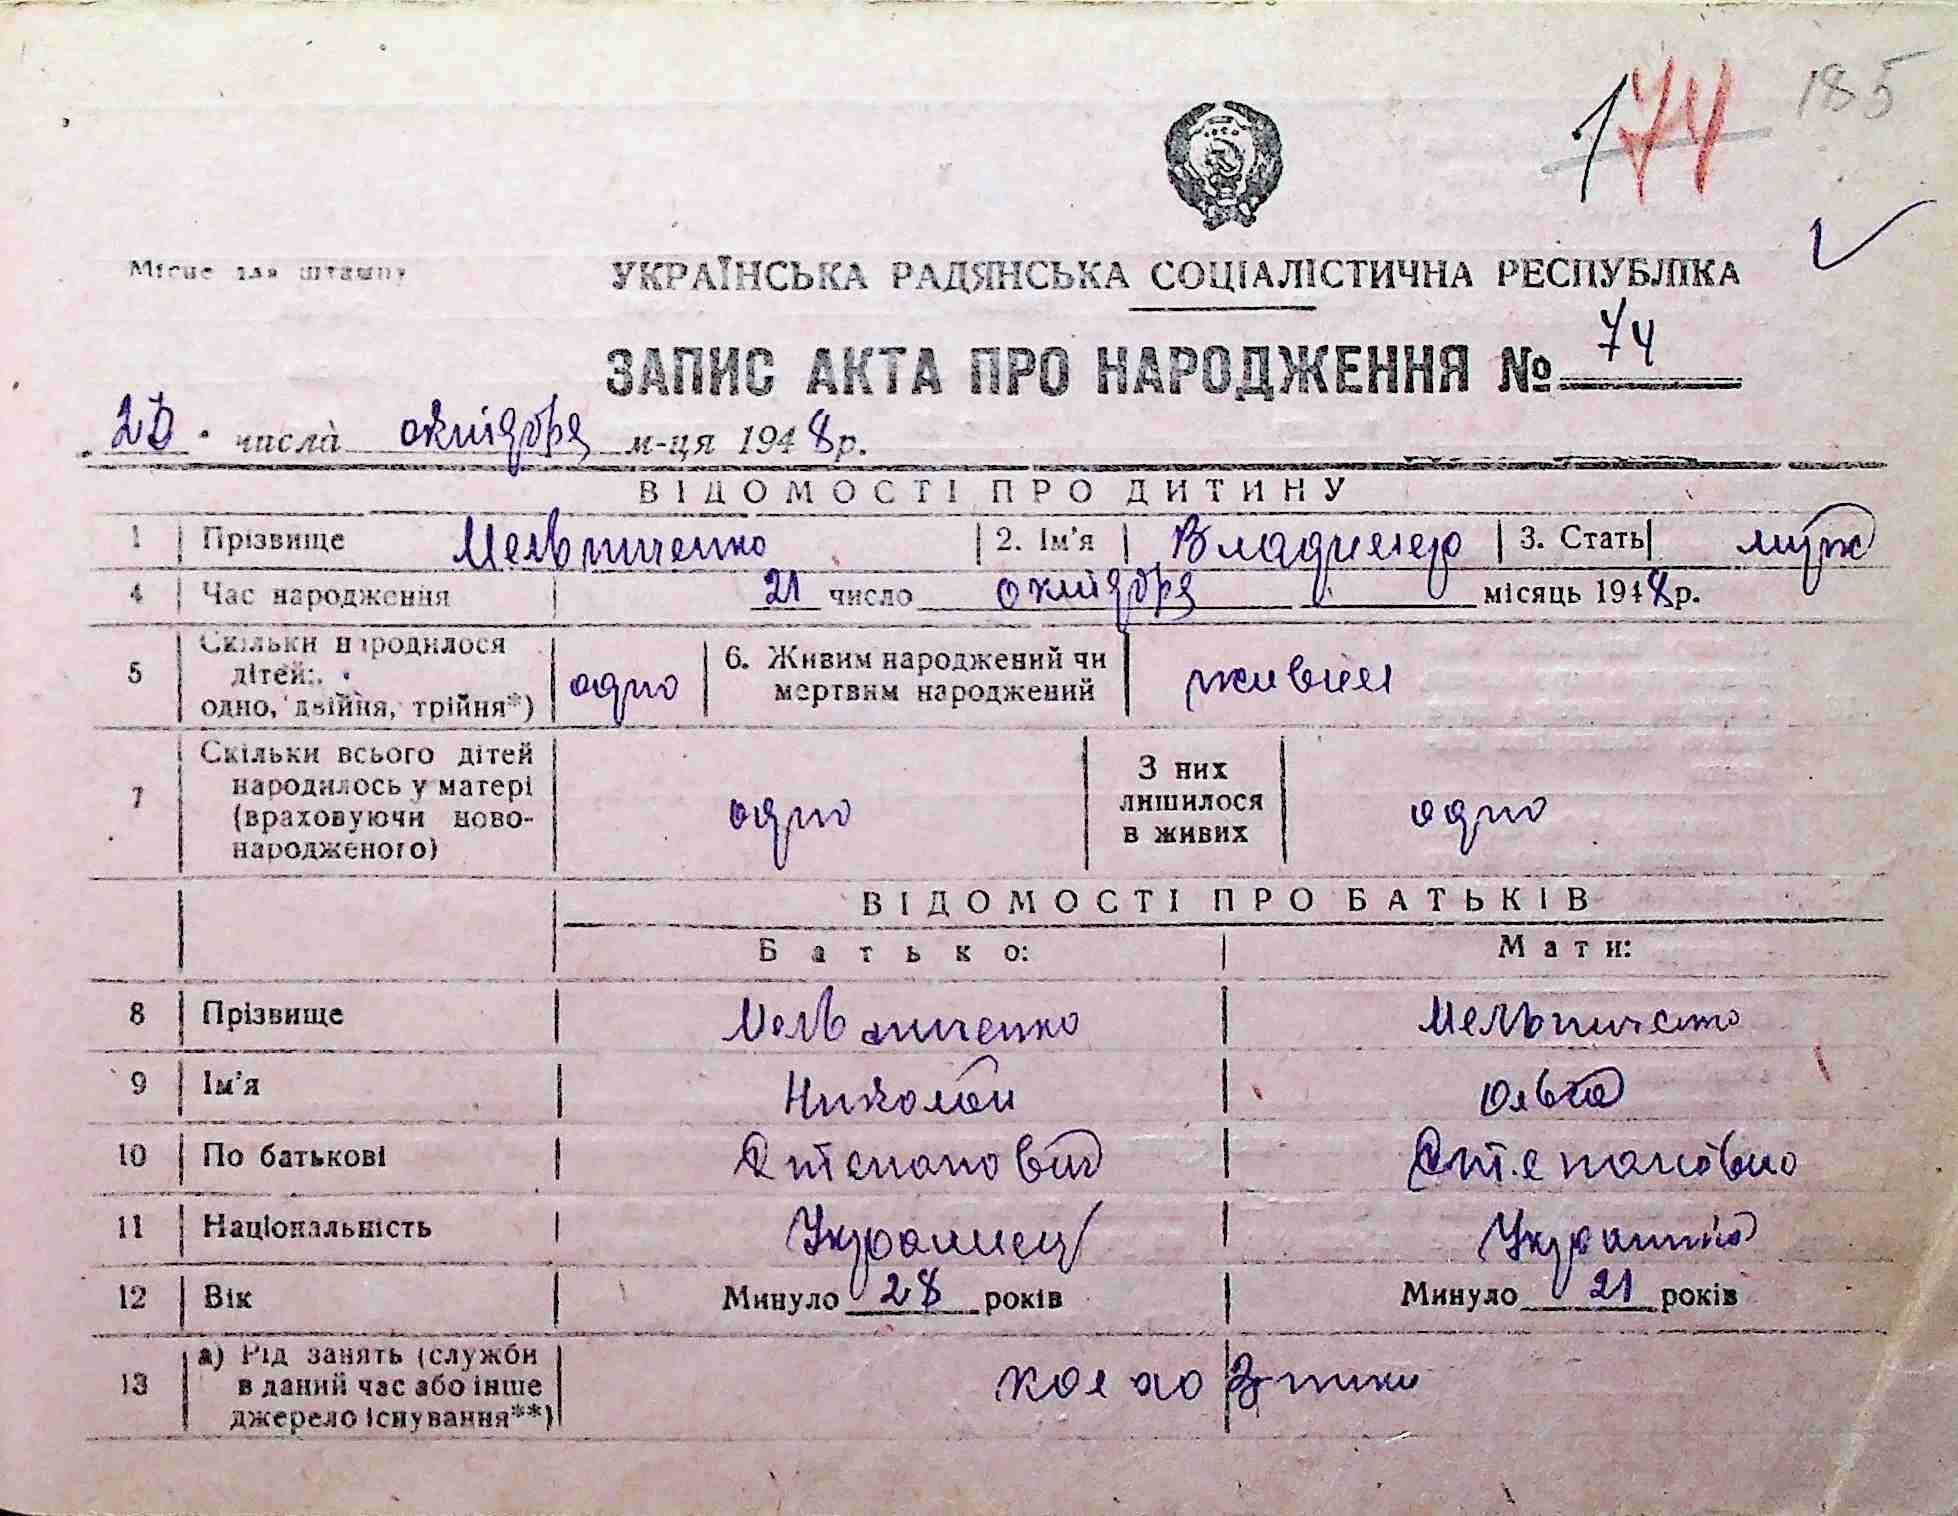 174 185
Місце для штампу
УКРАЇНСЬКА РАДЯНСЬКА СОЦІАЛІСТИЧНА РЕСПУБЛІКА
ЗАПИС АКТА ПРО НАРОДЖЕННЯ № 74
числа октября м-ця 1948 р.
ВІДОМОСТІ ПРО ДИТИНУ
1 Прізвище Мельниченко 2. Ім'я Владимир 3. Стать муж
4 Час народження 21 число октября місяць 1948 р.
5 Скільки народилося
дітей:
одно, двійня, трійня*) одно 6. Живим народжений чи
мертвим народжений живым
7 Скільки всього дітей
народилось у матері
(враховуючи ново-
народженого) одно З них
лишилося
в живих одно
ВІДОМОСТІ ПРО БАТЬКІВ
Батько: Мати:
8 Прізвище Мельниченко Мельниченко
9 Ім'я Николай Ольга
10 По батькові Степанович Степановна
11 Національність Украинец Украинка
12 Вік Минуло 28 років Минуло 21 років
13 а) Рід занять (служби
в даний час або інше
джерело існування**) колхозники